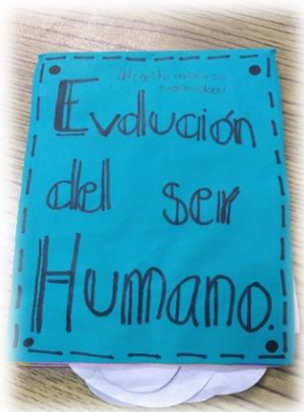 Evolución
del ser
Humano.